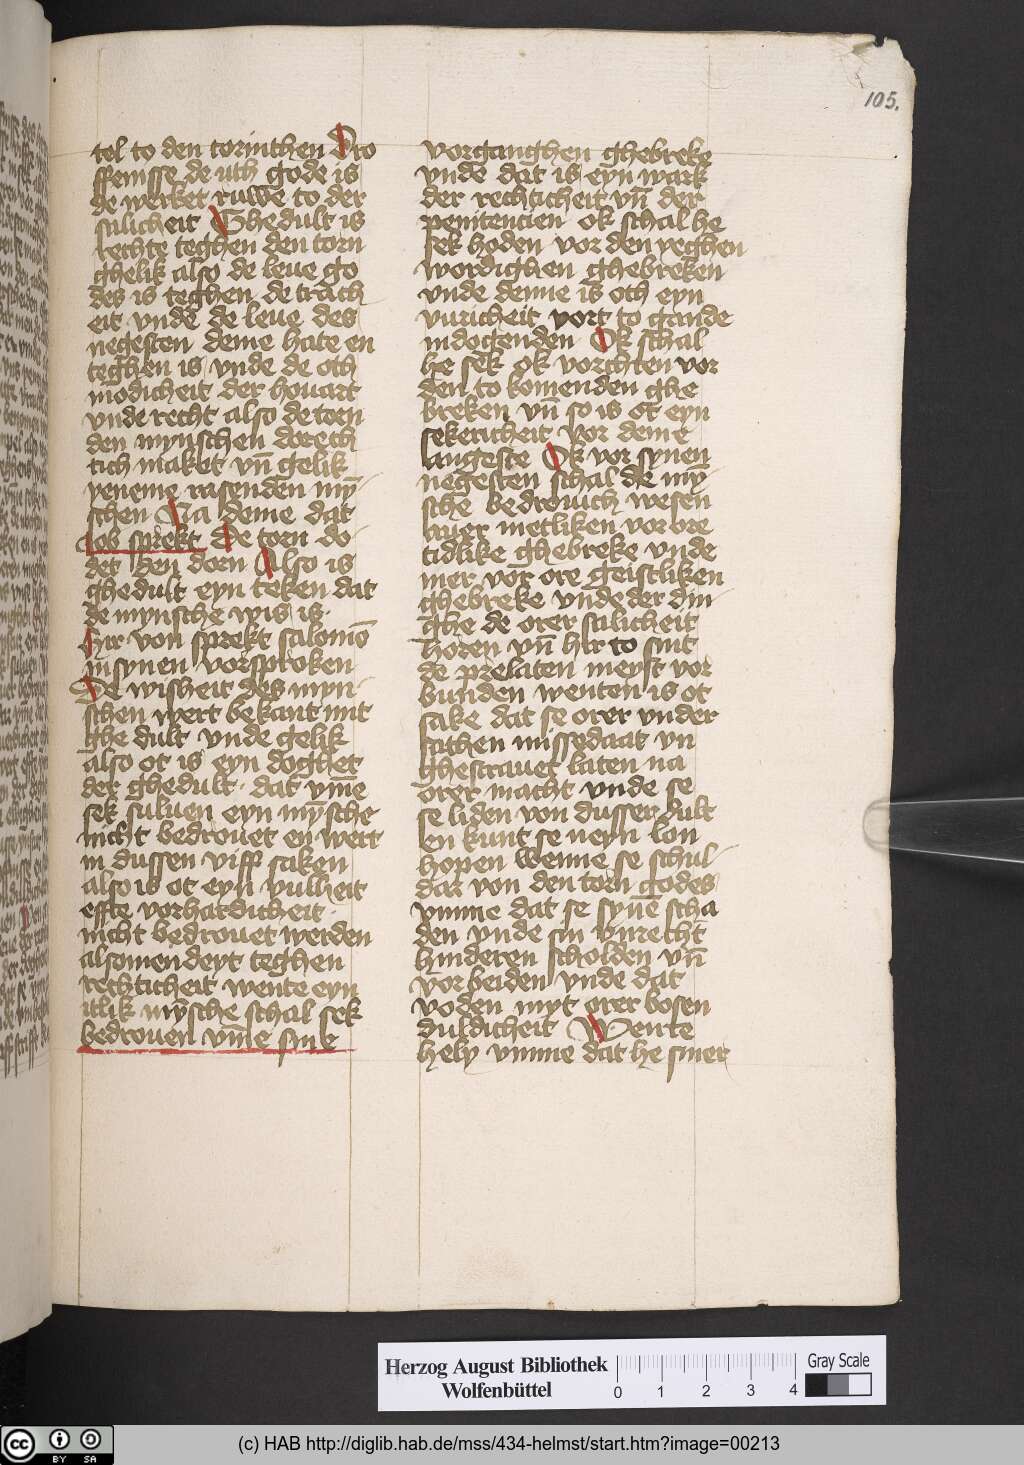 105.
tel to den corinthen Dro
ffenisse de uth gode is
de werket ruwe to der
salicheit Ghedult is
rechte teghen den torn
ghelik also de leue go
des is teghen de trach
eit vnde de leue des
negesten deme hate en
teghen is vnde de oth
modicheit der houart
vnde recht also de toen
den mynschen dorech
tich maket vn̄ gelik
yeneme rasenden mȳ
schen Na deme dat
Job sprekt De torn do
det den doren Also is
ghedult eyn teken dat
de mynsche wis is
Hir von sprekt salomō
in synen vorsproken
De wisheit des myn
schen wert bekant mit
ghe dult vnde gelik
also ot is eyn doghet
der ghedult dat vm̄e
sek suluen eyn mȳsche
nicht bedrouet en wert
in dussen viff saken
also is ot eyn vulheit
effte vorhardicheit
nicht bedrouet werden
alsomen deyt teghen
rechticheit wente eyn
itlik mȳsche schal sek
bedrouen vm̄e sine
vorganghen ghebreke
vnde dat is eyn wark
der rechticheit vn̄ der
penitencien ok schal he
sek hoden vor den yeghen
wordighen ghebreken
vnde denne is oth eyn
vuricheit vort to gande
in dogenden Ok schal
he sek ok vorchten vor
den to komenden ghe
breken vn̄ so is ot eyn
sekericheit vor deme
angeste Ok vor synen
negesten schal de mȳ
sche bedrouich wesen
auer metliken vor ore
tidlike ghebreke vnde
mer vor ore geistliken
ghebreke vnde der din
ghe de orer salicheit
horen vn̄ hir to sint
de prelaten meyst vor
bunden wenten is ot
sake dat se orer vnder
sathen missedaat vn
ghestrauet laten na
orer macht vnde se
se liden von dusser dult
en kunt se neyn lon
hopen wenne se schul
dar von den torn godes
vmme dat se synē scha
den vnde sin vnrecht
hinderen scholden vn̄
vor beiden vnde dat
voden myt orer bosen
duldicheit Wente
hely vmme dat he siner
Herzog August Bibliothek
Wolfenbüttel
0 1 2 3 4
Gray Scale
cc BY SA
(c) HAB http://diglib.hab.de/mss/434-helmst/start.htm?image=00213